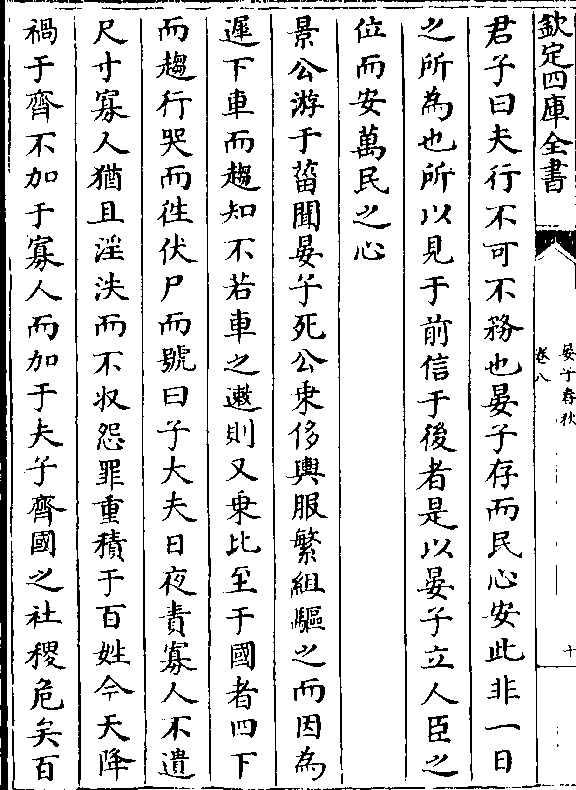 欽定四庫全書
晏子春秋
卷八
十
君子曰夫行不可不務也晏子存而民心安此非一日
之所為也所以見于前信于後者是以晏子立人臣之
位而安萬民之心
景公游于菑聞晏子死公乗侈輿服繁組驅之而因為
遲下車而趨知不若車之遫則又乗比至于國者四下
而趨行哭而徃伏尸而號曰子大夫日夜責寡人不遺
尺寸寡人猶且淫泆而不収怨罪重積于百姓今天降
禍于齊不加于寡人而加于夫子齊國之社稷危矣百